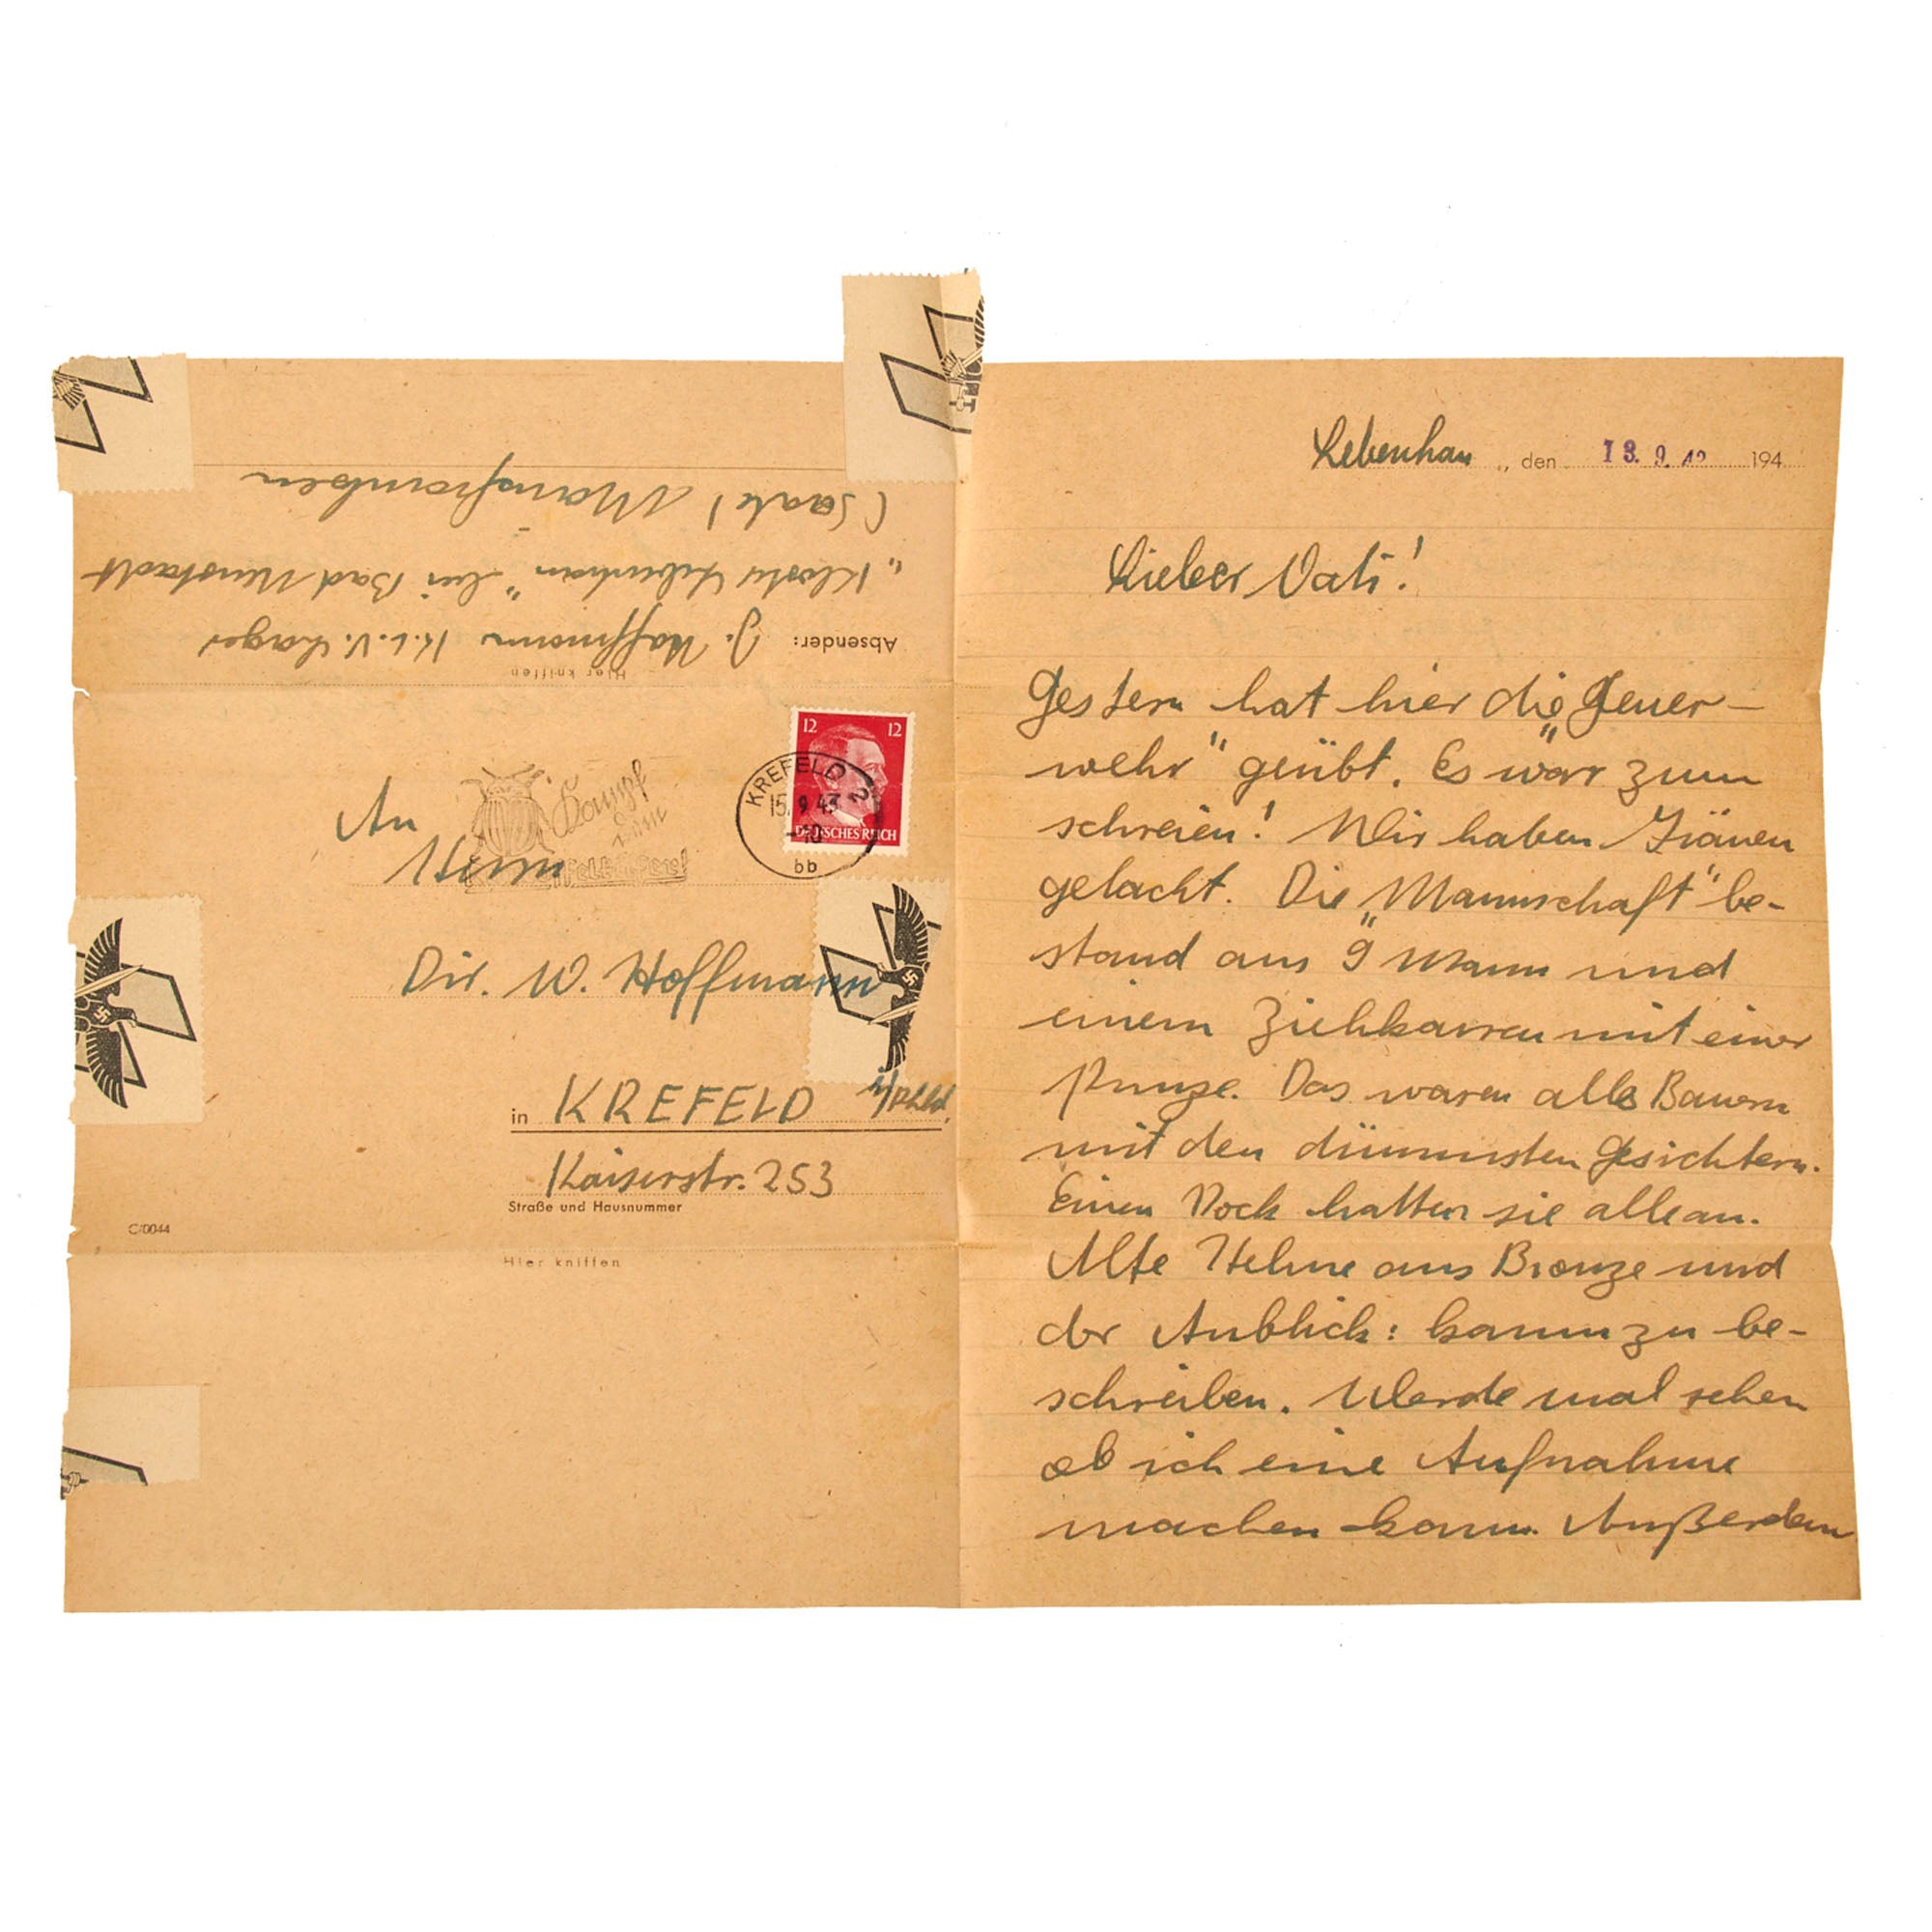 (Saale) Mainfranken
"Kloster Lebenhan" bei Bad Neustadt
Absender: J. Hoffmann K.L.V. Lager
Hier kniffen
12 12
DEUTSCHES REICH
KREFELD 2
15.9.43
-10
bb
Kampf
dem
Kartoffelkäfer!
An
Herrn
Dir. W. Hoffmann
in KREFELD i/Rhld.
Kaiserstr. 253
Straße und Hausnummer
C/0044
Hier kniffen
Lebenhan, den 13. 9. 42 194
Lieber Vati!
Gestern hat hier die „Feuer-
wehr" geübt. Es war zum
schreien! Wir haben Tränen
gelacht. Die „Mannschaft" be-
stand aus 9 Mann und
einem Ziehkarren mit einer
Pumpe. Das waren alle Bauern
mit den dümmsten Gesichtern.
Einen Rock hatten sie alle an.
Alte Helme aus Bronze und
der Anblick: kaum zu be-
schreiben. Werde mal sehen
ob ich eine Aufnahme
machen kann. Außerdem